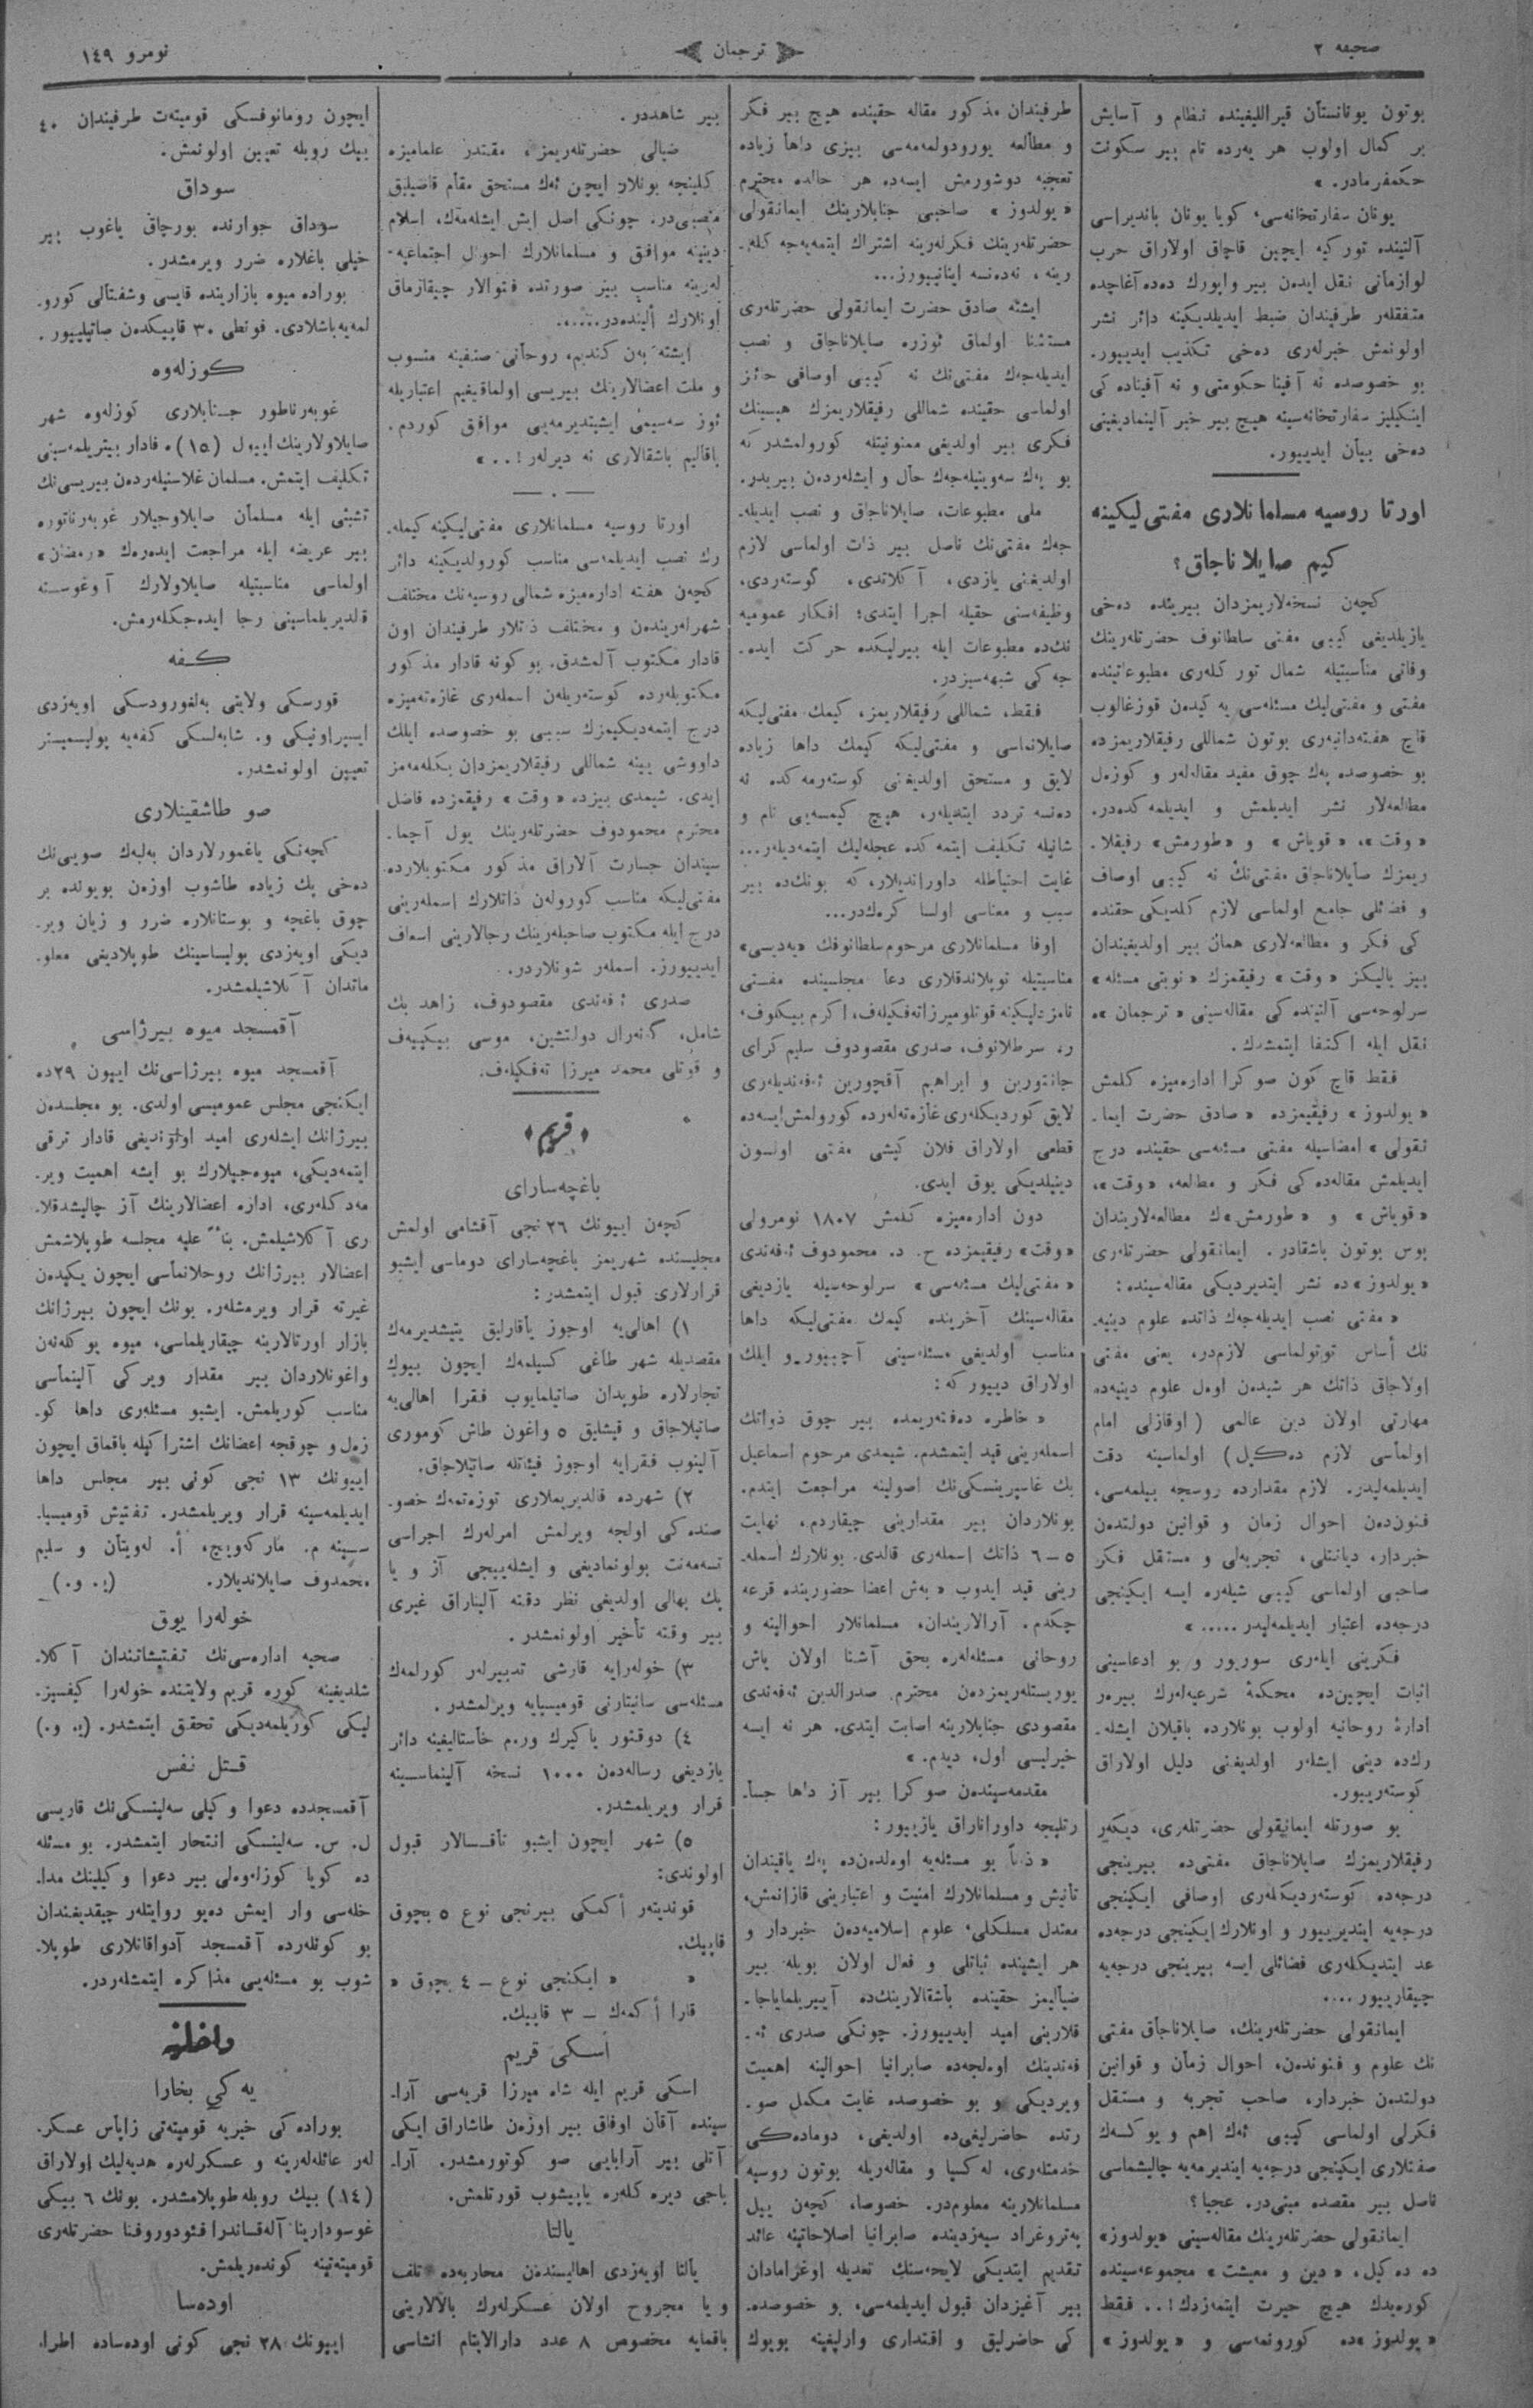 صحیفه ٢
ترجمان
نومرو ١٤٩
بوتون یونانستان قیراللیغینده نظام و آسایش
بر کمال اولوب هر یه‌رده تام بیر سکونت
حکمفرمادر. »
یونان سفارتخانه‌سی، کویا یونان باندیراسی
آلتینده تورکیه ایچین قاچاق اولاراق حرب
لوازماتی نقل ایده‌ن بیر واپورك ده‌ده‌آغاچده
متفقله‌ر طرفیندان ضبط ایدیلدیکینه دائر نشر
اولونمش خبرله‌ری ده‌خی تکذیب ایدییور.
بو خصوصده نه آفینا حکومتی و نه آفیناده کی
اینکیلیز سفارتخانه‌سینه هیچ بیر خبر آلینمادیغینی
ده‌خی بیان ایدییور.
اورتا روسیه مسلمانلاری مفتی‌لیکینه
کیم صایلاناجاق؟
کچه‌ن نسخه‌لاریمزدان بیرینده ده‌خی
یازیلدیغی کیبی مفتی سلطانوف حضرتله‌رینك
وفاتی مناسبتیله شمال تورکله‌ری مطبوعاتینده
مفتی و مفتی‌لیك مسئله‌سی یه کیده‌ن قوزغالوب
قاچ هفته‌دانبه‌ری بوتون شماللی رفیقلاریمزده
بو خصوصده په‌ك چوق مفید مقاله‌لر و کوزه‌ل
مطالعه‌لار نشر ایدیلمش و ایدیلمه کده‌در.
« وقت »، « قویاش » و « طورمش » رفیقلا۔
ریمزك صایلاناجاق مفتی‌نك نه کیبی اوصاف
و فضائلی جامع اولماسی لازم کلدیکی حقنده
کی فکر و مطالعه‌لاری همان بیر اولدیغیندان
بیز یالیکز « وقت » رفیقمزك « نوبتی مسئله »
سرلوحه‌سی آلتینده کی مقاله‌سینی « ترجمان »ه
نقل ایله اکتفا ایتمشدك.
فقط قاچ کون صوکرا اداره‌میزه کلمش
« یولدوز » رفیقیمزده « صادق حضرت ایما۔
نقولی » امضاسیله مفتی مسئه‌سی حقینده درج
ایدیلمش مقاله‌ده کی فکر و مطالعه، « وقت »،
« قویاش » و « طورمش »ك مطالعه‌لاریندان
بوس بوتون باشقادر. ایمانقولی حضرتله‌ری
« یولدوز »ده نشر ایتدیردیکی مقاله‌سینده :
« مفتی نصب ایدیله‌جه‌ك ذاتده علوم دینیه‌۔
نك أساس توتولماسی لازم‌در، یعنی مفتی
اولاجاق ذاتك هر شیده‌ن اوه‌ل علوم دینیه‌ده
مهارتی اولان دین عالمی ( اوقازلی امام
اولماسی لازم ده‌کیل ) اولماسینه دقت
ایدیلمه‌لیدر. لازم مقدارده روسجه بیلمه‌سی،
فنون‌ده‌ن احوال زمان و قوانین دولتده‌ن
خبردار، دیانتلی، تجربه‌لی و مستقل فکر
صاحبی اولماسی کیبی شیله‌ره ایسه ایکینجی
درجه‌ده اعتبار ایدیلمه‌لیدر..... »
فکرینی ایله‌ری سوریور و بو ادعاسینی
اثبات ایچین‌ده محکمهٔ شرعیه‌له‌رك بیره‌ر
ادارهٔ روحانیه اولوب بونلارده باقیلان ایشله۔
رك‌ده دینی ایشله‌ر اولدیغنی دلیل اولاراق
کوسته‌رییور.
بو صورتله ایمانقولی حضرتله‌ری، دیکه‌ر
رفیقلاریمزك صایلاناجاق مفتی‌ده بیرینجی
درجه‌ده کوسته‌ردیکله‌ری اوصافی ایکینجی
درجه‌یه ایندیرییور و اونلارك ایکینجی درجه‌ده
عد ایتدیکله‌ری فضائلی ایسه بیرینجی درجه‌یه
چیقارییور....
ایمانقولی حضرتله‌رینك، صایلاناجاق مفتی
نك علوم و فنونده‌ن، احوال زمان و قوانین
دولتده‌ن خبردار، صاحب تجربه و مستقل
فکرلی اولماسی کیبی ئه‌ك اهم و یوکسه‌ك
صفتلاری ایکینجی درجه‌یه ایندیرمه‌یه چالیشماسی
ناصل بیر مقصده مبنی‌در. عجبا؟
ایمانقولی حضرتله‌رینك مقاله‌سینی «یولدوز»
ده ده کیل، « دین و معیشت » مجموعه‌سینده
کوره‌یدك هیچ حیرت ایتمه‌زدك!.. فقط
« یولدوز »ده کورونمه‌سی و « یولدوز »
طرفیندان مذکور مقاله حقینده هیچ بیر فکر
و مطالعه یورودولمه‌مه‌سی بیزی داها زیاده
تعجبه دوشورمش ایسه‌ده هر حالده محترم
« یولدوز » صاحبی جنابلارینك ایمانقولی
حضرتله‌رینك فکرله‌رینه اشتراك ایتمه‌یه‌جه کله۔
رینه، نه‌ده‌نسه اینانییورز...
ایشته صادق حضرت ایمانقولی حضرتله‌ری
مستثنا اولماق ئوزره صایلاناجاق و نصب
ایدیله‌جه‌ك مفتی‌نك نه کیبی اوصافی حائز
اولماسی حقینده شماللی رفیقلاریمزك هپسینك
فکری بیر اولدیغی ممنونیتله کورولمشدر که
بو په‌ك سه‌وینیله‌جه‌ك حال و ایشله‌رده‌ن بیریدر.
ملی مطبوعات، صایلاناجاق و نصب ایدیله۔
جه‌ك مفتی‌نك ناصل بیر ذات اولماسی لازم
اولدیغنی یازدی، آکلاتدی، گوسته‌ردی،
وظیفه‌سنی حقیله اجرا ایتدی؛ افکار عمومیه
نك‌ده مطبوعات ایله بیرلیکده حرکت ایده۔
جه کی شبهه‌سیزدر.
فقط، شماللی رفیقلاریمز، کیمك مفتی‌لیکه
صایلانماسی و مفتی‌لیکه کیمك داها زیاده
لایق و مستحق اولدیغنی کوسته‌رمه کده نه
ده‌نسه تردد ایتدیله‌ر، هیچ کیمسه‌یی نام و
شانیله تکلیف ایتمه کده عجله‌لیك ایتمه‌دیله‌ر...
غایت احتیاطله داوراندیلار، که بونك‌ده بیر
سبب و معناسی اولسا کره‌كدر...
اوفا مسلمانلاری مرحوم سلطانوفك «یه‌دیسی»
مناسبتیله توپلاندقلاری دعا مجلسینده مفتی
نامزدلیکینه قوتلومیرزاته‌فکیله‌ف، اکرم بیکوف،
ر. سرطلانوف، صدری مقصودوف سلیم کرای
جانتورین و ابراهیم آقچورین ئه‌فه‌ندیله‌ری
لایق کوردیکله‌ری غازه‌ته‌له‌رده کورولمش‌ایسه‌ده
قطعی اولاراق فلان کیشی مفتی اولسون
دینیلدیکی یوق ایدی.
دون اداره‌میزه کلمش ١٨٠٧ نومرولی
«وقت» رفیقیمزده ح. د. محمودوف ئه‌فه‌ندی
« مفتی‌لیك مسئه‌سی » سرلوحه‌سیله یازدیغی
مقاله‌سینك آخرینده کیمك مفتی‌لیکه داها
مناسب اولدیغی مسئله‌سینی آچییور و ایلك
اولاراق دییورکه :
« خاطره ده‌فته‌ریمده بیر چوق ذواتك
اسمله‌رینی قید ایتمشدم. شیمدی مرحوم اسماعیل
بك غاسپرینسکی‌نك اصولینه مراجعت ایتدم.
بونلاردان بیر مقدارینی چیقاردم، نهایت
٥ – ٦ ذاتك اسمله‌ری قالدی. بونلارك اسمله۔
رینی قید ایدوب « به‌ش اعضا حضورینده قرعه
چکدم. آرالاریندان، مسلمانلار احوالینه و
روحانی مسئله‌له‌ره بحق آشنا اولان یاش
یوریستله‌ریمزده‌ن محترم صدرالدین ئه‌فه‌ندی
مقصودی جنابلارینه اصابت ایتدی. هر نه ایسه
خیرلیسی اول، دیدم. »
مقدمه‌سینده‌ن صوکرا بیر آز داها جسا۔
رتلیجه داوراناراق یازییور :
« ذاتاً بو مسئله‌یه اوه‌لده‌ن‌ده په‌ك یاقیندان
تأنیش و مسلمانلارك امنیت و اعتبارینی قازانمش،
معتدل مسلکلی، علوم اسلامیه‌ده‌ن خبردار و
هر ایشینده ثباتلی و فعال اولان بویله بیر
ضیالیمز حقینده باشقالارینك‌ده آییریلمایاجا۔
قلارینی امید ایدییورز. چونکی صدری ئه۔
فه‌ندینك اوه‌لجه‌ده صابرانیا احوالینه اهمیت
ویردیکی و بو خصوصده غایت مکمل صو۔
رتده حاضرلیغی‌ده اولدیغی، دوماده‌کی
خدمتله‌ری، له‌کسیا و مقاله‌ریله بوتون روسیه
مسلمانلارینه معلوم‌در. خصوصا، کچه‌ن ییل
په‌تروغراد سیه‌زدینده صابرانیا اصلاحاتینه عائد
تقدیم ایتدیکی لایحه‌سنك تعدیله اوغرامادان
بیر آغیزدان قبول ایدیلمه‌سی، بو خصوصده۔
کی حاضرلیق و اقتداری وارلیغینه بویوك
بیر شاهددر.
ضیالی حضرتله‌ریمز، مقتدر علمامیزه
کلینجه بونلار ایچن ئه‌ك مستحق مقام قاضیلیق
منصبی‌در. چونکی اصل ایش ایشله‌مه‌ك، اسلام
دینینه موافق و مسلمانلارك احوال اجتماعیه۔
له‌رینه مناسب بیر صورتده فتوالار چیقارماق
اونلارك ألینده‌در......
ایشته به‌ن کندیم، روحانی صنفینه منسوب
و ملت اعضالارینك بیریسی اولماقیغیم اعتباریله
ئوز سه‌سیمی ایشیتدیرمه‌یی موافق کوردم.
باقالیم باشقالاری نه دیرله‌ر!.. »
اورتا روسیه مسلمانلاری مفتی‌لیکینه کیمله۔
رك نصب ایدیلمه‌سی مناسب کورولدیکینه دائر
کچه‌ن هفته اداره‌میزه شمالی روسیه‌نك مختلف
شهرله‌رینده‌ن و مختلف ذاتلار طرفیندان اون
قادار مکتوب آلمشدق. بو کونه قادار مذکور
مکتوبله‌رده کوسته‌ریله‌ن اسمله‌ری غازه‌ته‌میزه
درج ایتمه‌دیکیمزك سببی بو خصوصده ایلك
داووشی یینه شماللی رفیقلاریمزدان بکله‌مه‌مز
ایدی. شیمدی بیزده « وقت » رفیقمزده فاضل
محترم محمودوف حضرتله‌رینك یول آچما۔
سیندان جسارت آلاراق مذکور مکتوبلارده
مفتی‌لیکه مناسب کوروله‌ن ذاتلارك اسمله‌رینی
درج ایله مکتوب صاحبله‌رینك رجالارینی اسعاف
ایدییورز. اسمله‌ر شونلاردر.
صدری ئه‌فه‌ندی مقصودوف، زاهد بك
شامل، گه‌نه‌رال دولتشین، موسی بیکییه‌ف
و قوتلی محمد میرزا ته‌فکیله‌ف.
﴿ قریم ﴾
باغچه‌سارای
کچه‌ن ایيونك ٢٦ نجی آقشامی اولمش
مجلیسنده شهریمز باغچه‌سارای دوماسی ایشبو
قرارلاری قبول ایتمشدر :
١) اهالی‌یه اوجوز یاقارلیق یتیشدیرمه‌ك
مقصدیله شهر طاغی کسیلمه‌ك ایچون بیوك
تجارلاره طوپدان صاتیلمایوب فقرا اهالی‌یه
صاتیلاجاق و قیشلیق ٥ واغون طاش کوموری
آلینوب فقرایه اوجوز فیئاتله صاتیلاجاق.
٢) شهرده قالدیریملاری توزه‌تمه‌ك خصو۔
صنده کی اولجه ویرلمش امرله‌رك اجراسی
تسه‌مه‌نت بولونمادیغی و ایشله‌ییجی آز و یا
پك بهالی اولدیغی نظر دقته آلیناراق غیری
بیر وقته تأخیر اولونمشدر.
٣) خوله‌رایه قارشی تدبیرله‌ر کورلمه‌ك
مسئله‌سی سانیتارنی قومیسیایه ویرلمشدر.
٤) دوقتور یاکیرك وره‌م خاستالیغینه دائر
یازدیغی رساله‌ده‌ن ١٠٠٠ نسخه آلینماسینه
قرار ویریلمشدر.
٥) شهر ایچون ایشبو تاقسالار قبول
اولوندی:
قوندیته‌ر أکمکی بیرنجی نوع ٥ بچوق
قاپیك.
« « ایکنجی نوع – ٤ بچوق «
قارا أکمه‌ك – ٣ قاپیك.
أسکی قریم
اسکی قریم ایله شاه میرزا قریه‌سی آرا۔
سینده آقان اوفاق بیر اوزه‌ن طاشاراق ایکی
آتلی بیر آرابایی صو کوتورمشدر. آرا۔
باجی دیره کله‌ره یاپیشوب قورتلمش.
یالتا
یالتا اویه‌زدی اهالیسنده‌ن محاربه‌ده تلف
و یا مجروح اولان عسکرله‌رك بالالارینی
باقمایه مخصوص ٨ عدد دارالایتام انشاسی
ایچون رومانوفسکی قومیته‌ت طرفیندان ٤٠
بیك روبله تعیین اولونمش.
سوداق
سوداق جوارنده بورچاق یاغوب بیر
خیلی باغلاره ضرر ویرمشدر.
بوراده میوه بازارینده قایسی وشفتالی کورو۔
لمه‌یه‌باشلادی. فونطی ٣٠ قاپیکدن صاتیلییور.
کوزله‌وه
غوبه‌رناطور جنابلاری کوزله‌وه شهر
صایلاولارینك اییول (١٥) ه قادار بیتریلمه‌سینی
تکلیف ایتمش. مسلمان غلاسنیله‌رده‌ن بیریسی‌نك
تشبثی ایله مسلمان صایلاوجیلار غوبه‌رناتوره
بیر عریضه ایله مراجعت ایده‌ره‌ك « رمضان »
اولماسی مناسبتیله صایلاولارك آوغوسته
قالدیریلماسینی رجا ایده‌جکله‌رمش.
کفه
قورسکی ولایتی به‌لغورودسکی اویه‌زدی
ایسپراونیکی و. شابه‌لسکی کفه‌یه پولیسمیستر
تعیین اولونمشدر.
صو طاشقینلاری
کچه‌نکی یاغمورلاردان به‌لبه‌ك صویی‌نك
ده‌خی پك زیاده طاشوب اوزه‌ن بویولده بر
چوق باغچه و بوستانلاره ضرر و زیان ویر۔
دیکی اویه‌زدی پولیساسینك طوپلادیغی معلو۔
ماتدان آکلاشیلمشدر.
آقمسجد میوه بیرژاسی
آقمسجد میوه بیرژاسی‌نك اییون ٢٩ده
ایکنجی مجلس عمومیسی اولدی. بو مجلسده‌ن
بیرژانك ایشله‌ری امید اولوندیغی قادار ترقی
ایتمه‌دیکی، میوه‌جیلارك بو ایشه اهمیت ویر۔
مه‌دکله‌ری، اداره اعضالارینك آز چالیشدقلا۔
ری آکلاشیلمش. بناءً علیه مجلسه طوپلاشمش
اعضالار بیرژانك روحلانماسی ایچون یکیده‌ن
غیرته قرار ویرمشله‌ر. بونك ایچون بیرژانك
بازار اورتالارینه چیقاریلماسی، میوه یوکله‌نه‌ن
واغونلاردان بیر مقدار ویرکی آلینماسی
مناسب کوریلمش. ایشبو مسئله‌ری داها کو۔
زه‌ل و چوقجه اعضانك اشتراکیله باقماق ایچون
اییونك ١٣ نجی کونی بیر مجلس داها
ایدیلمه‌سینه قرار ویریلمشدر. تفتیش قومیسیا۔
سینه م. مارکه‌ویچ، أ. له‌ویتان و سلیم
محمدوف صایلاندیلار. (ی. و.)
خوله‌را یوق
صحیه اداره‌سی‌نك تفتیشاتندان آکلا۔
شلدیغینه کوره قریم ولایتنده خوله‌را کیفسیز۔
لیکی کوریلمه‌دیکی تحقق ایتمشدر. (ی. و.)
قتل نفس
آقمسجدده دعوا وکیلی سه‌لینسکی‌نك قاریسی
ل. س. سه‌لینسکی انتحار ایتمشدر. بو مسئله
ده کویا کوزله‌وه‌لی بیر دعوا وکیلینك مدا۔
خله‌سی وار ایمش ده‌یو روایتله‌ر چیقدیغندان
بو کونله‌رده آقمسجد آدواقاتلاری طوپلا۔
شوب بو مسئله‌یی مذاکره ایتمشله‌ردر.
داخلیه
یه کی بخارا
بوراده کی خیریه قومیته‌تی زاپاس عسکر۔
له‌ر عائله‌له‌رینه و عسکرله‌ره هدیه‌لیك اولاراق
(١٤) بیك روبله طوپلامشدر. بونك ٦ بیکی
غوسودارینا آله‌قساندرا فئودوروفنا حضرتله‌ری
قومیته‌تینه کونده‌ریلمش.
اوده‌سا
اییونك ٢٨ نجی کونی اوده‌ساده اطرا۔